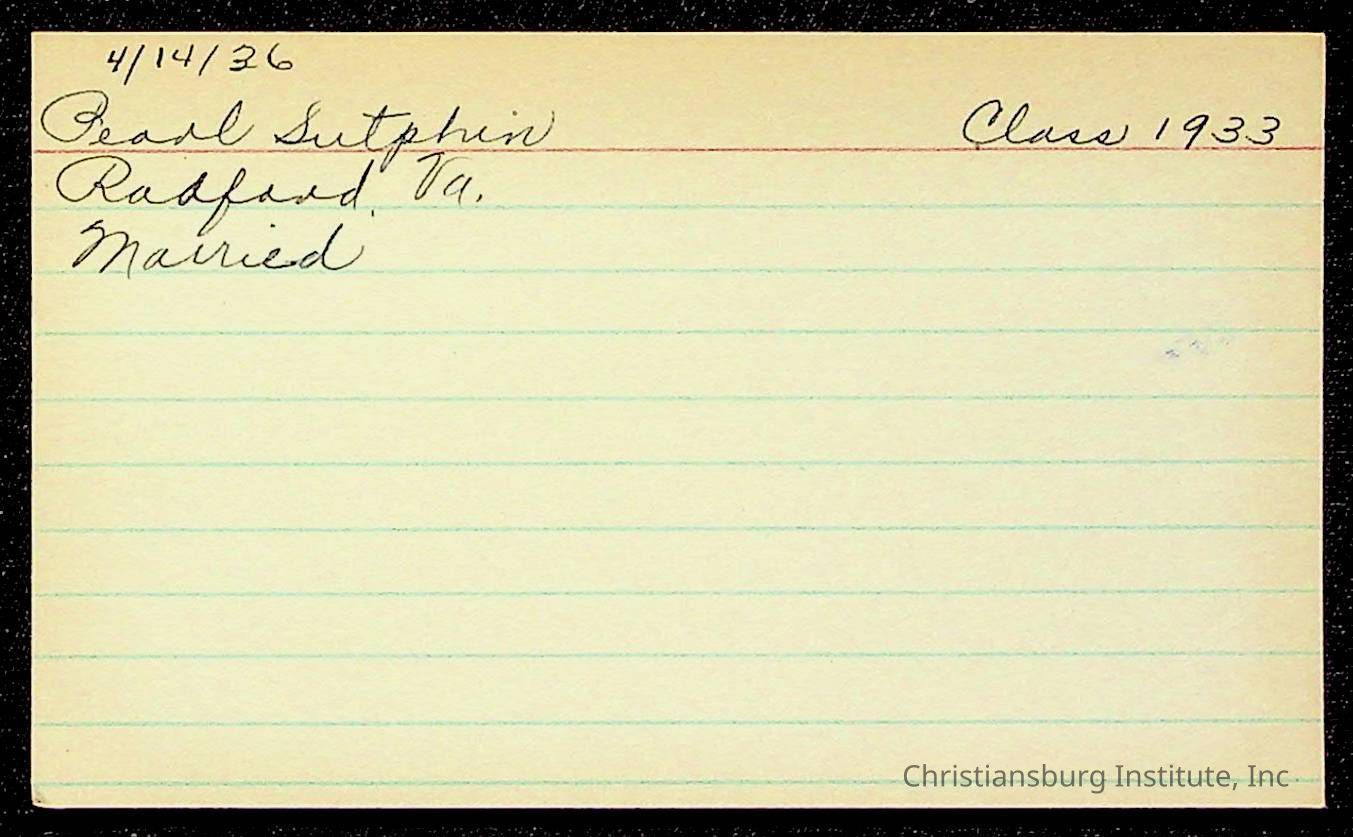 4/14/36
Pearl Sutphin Class 1933
Radford, Va.
Married
Christiansburg Institute, Inc